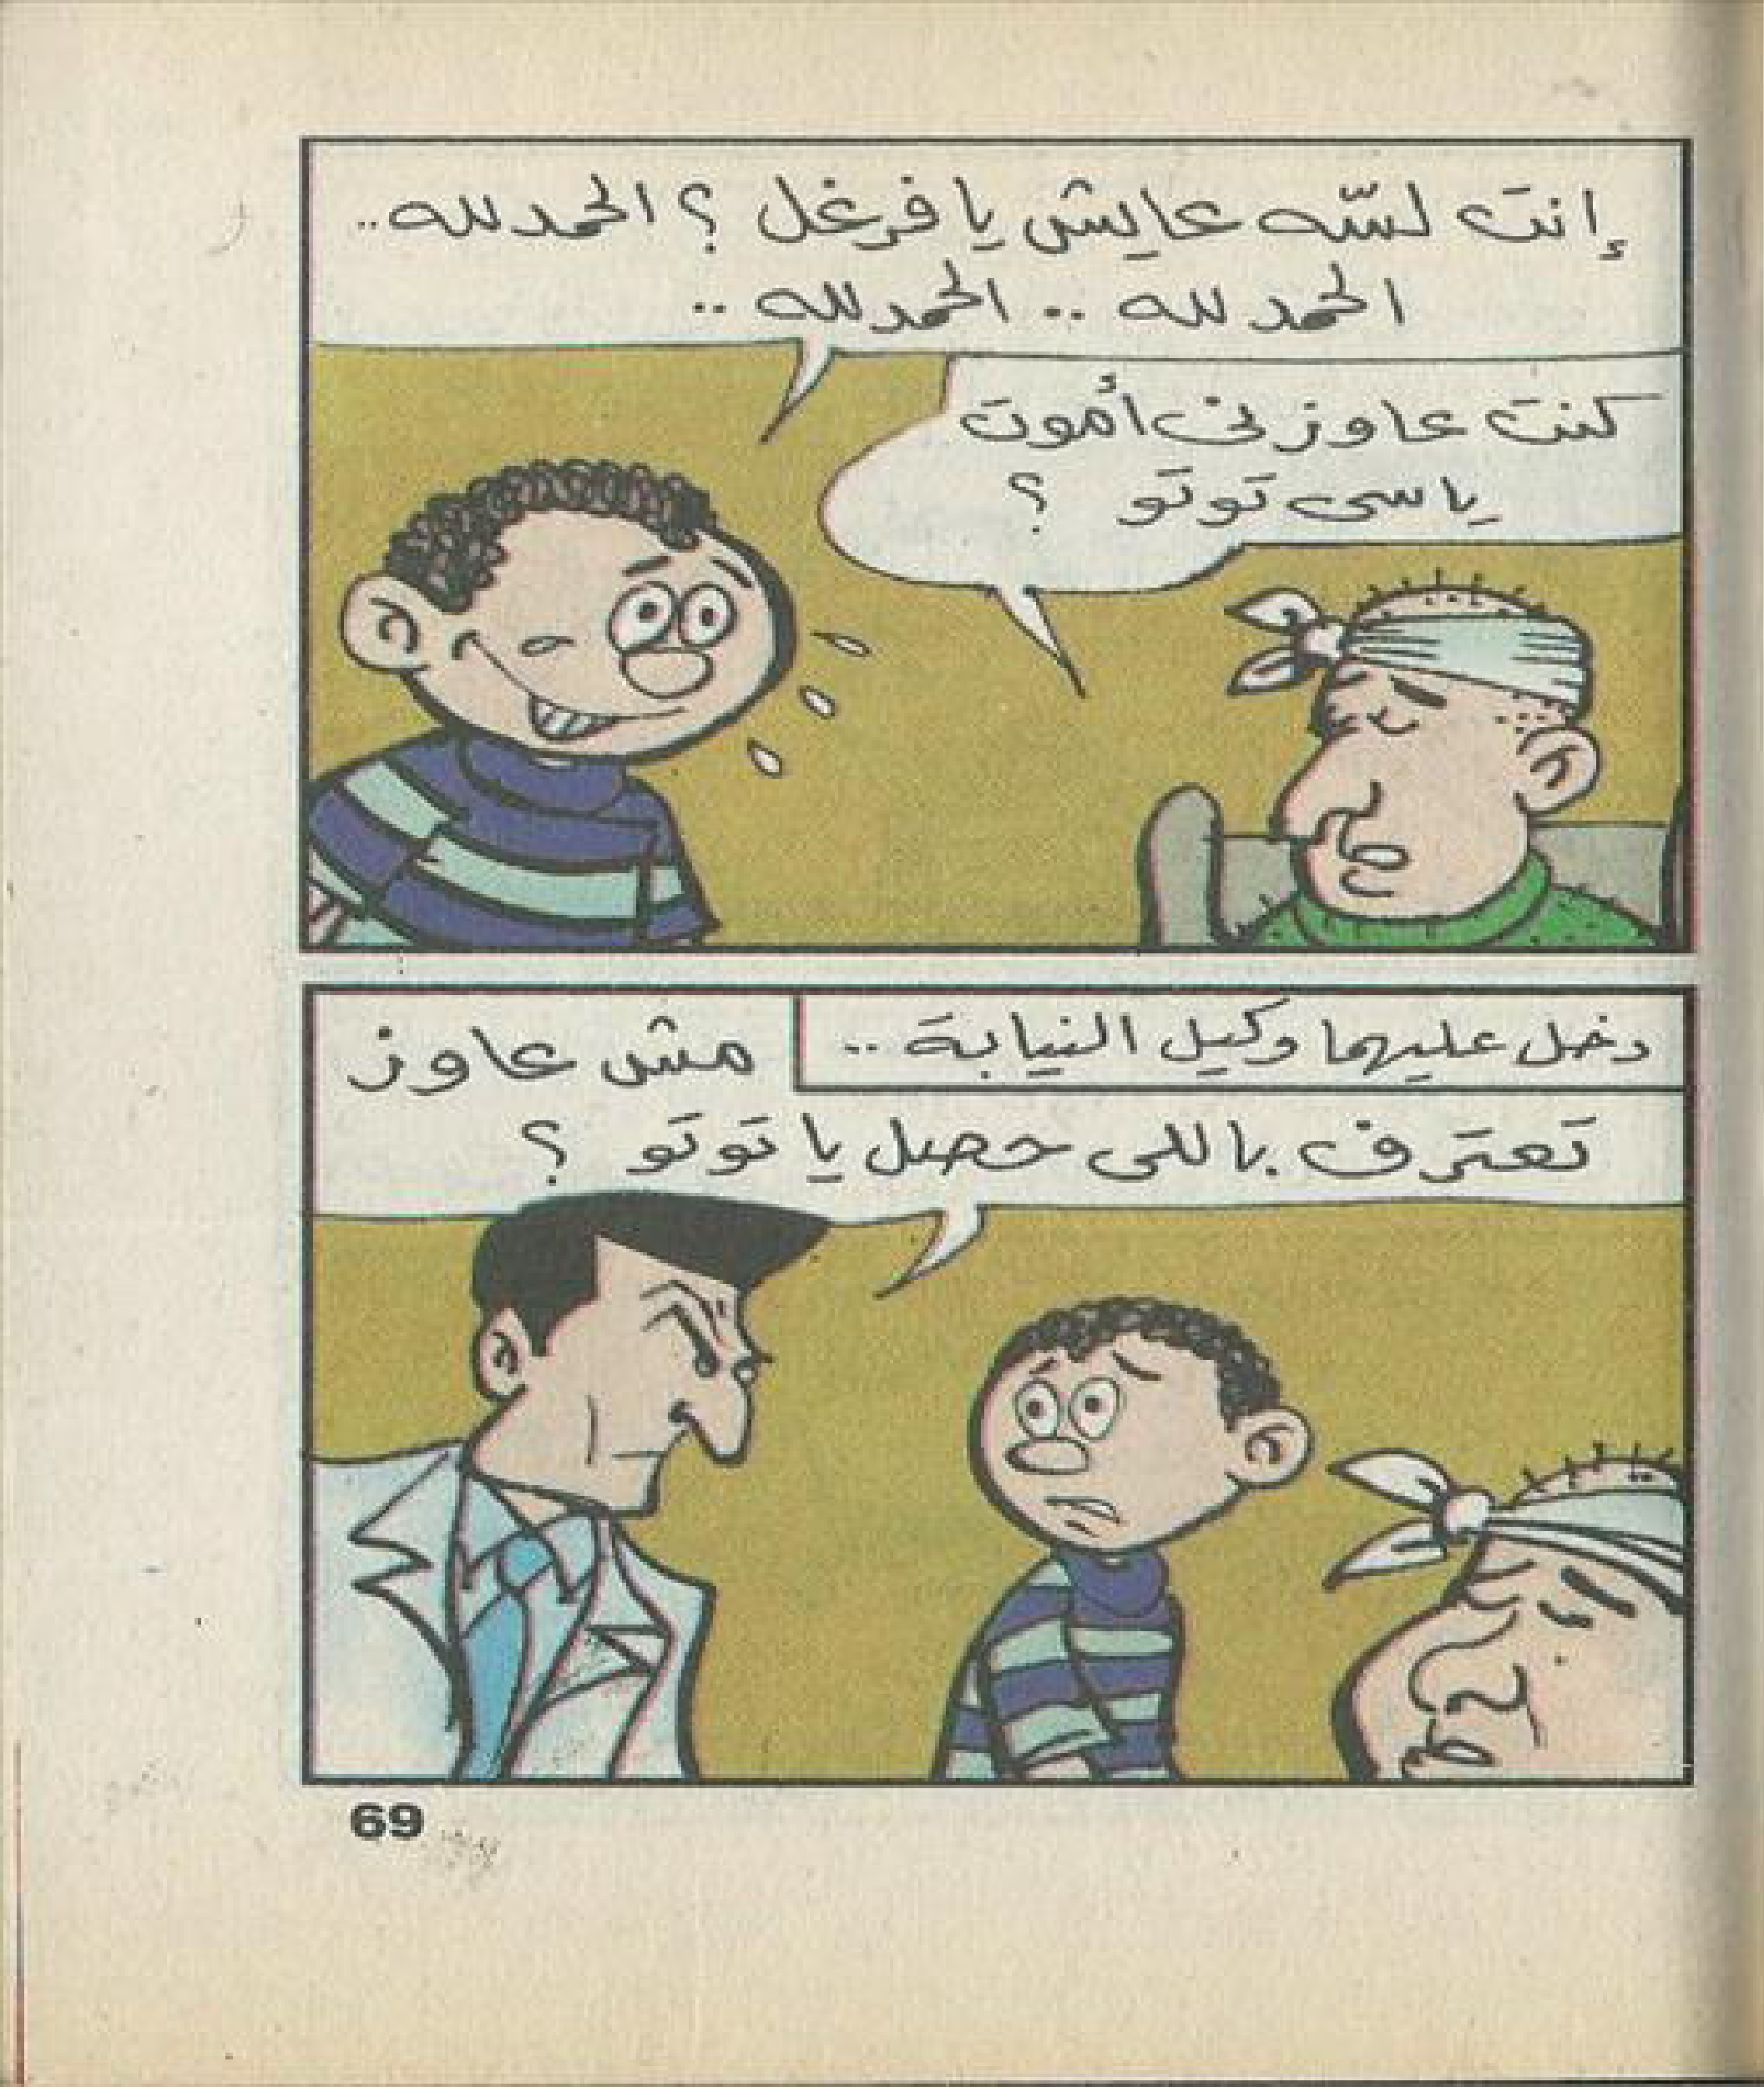 إنت لسّه عايش يا فرغل ؟ الحمد لله ..
الحمد لله .. الحمد لله ..
كنت عاوزنى أموت
يا سى توتو ؟
دخل عليهما وكيل النيابة ..
مش عاوز
تعترف باللى حصل يا توتو ؟
69